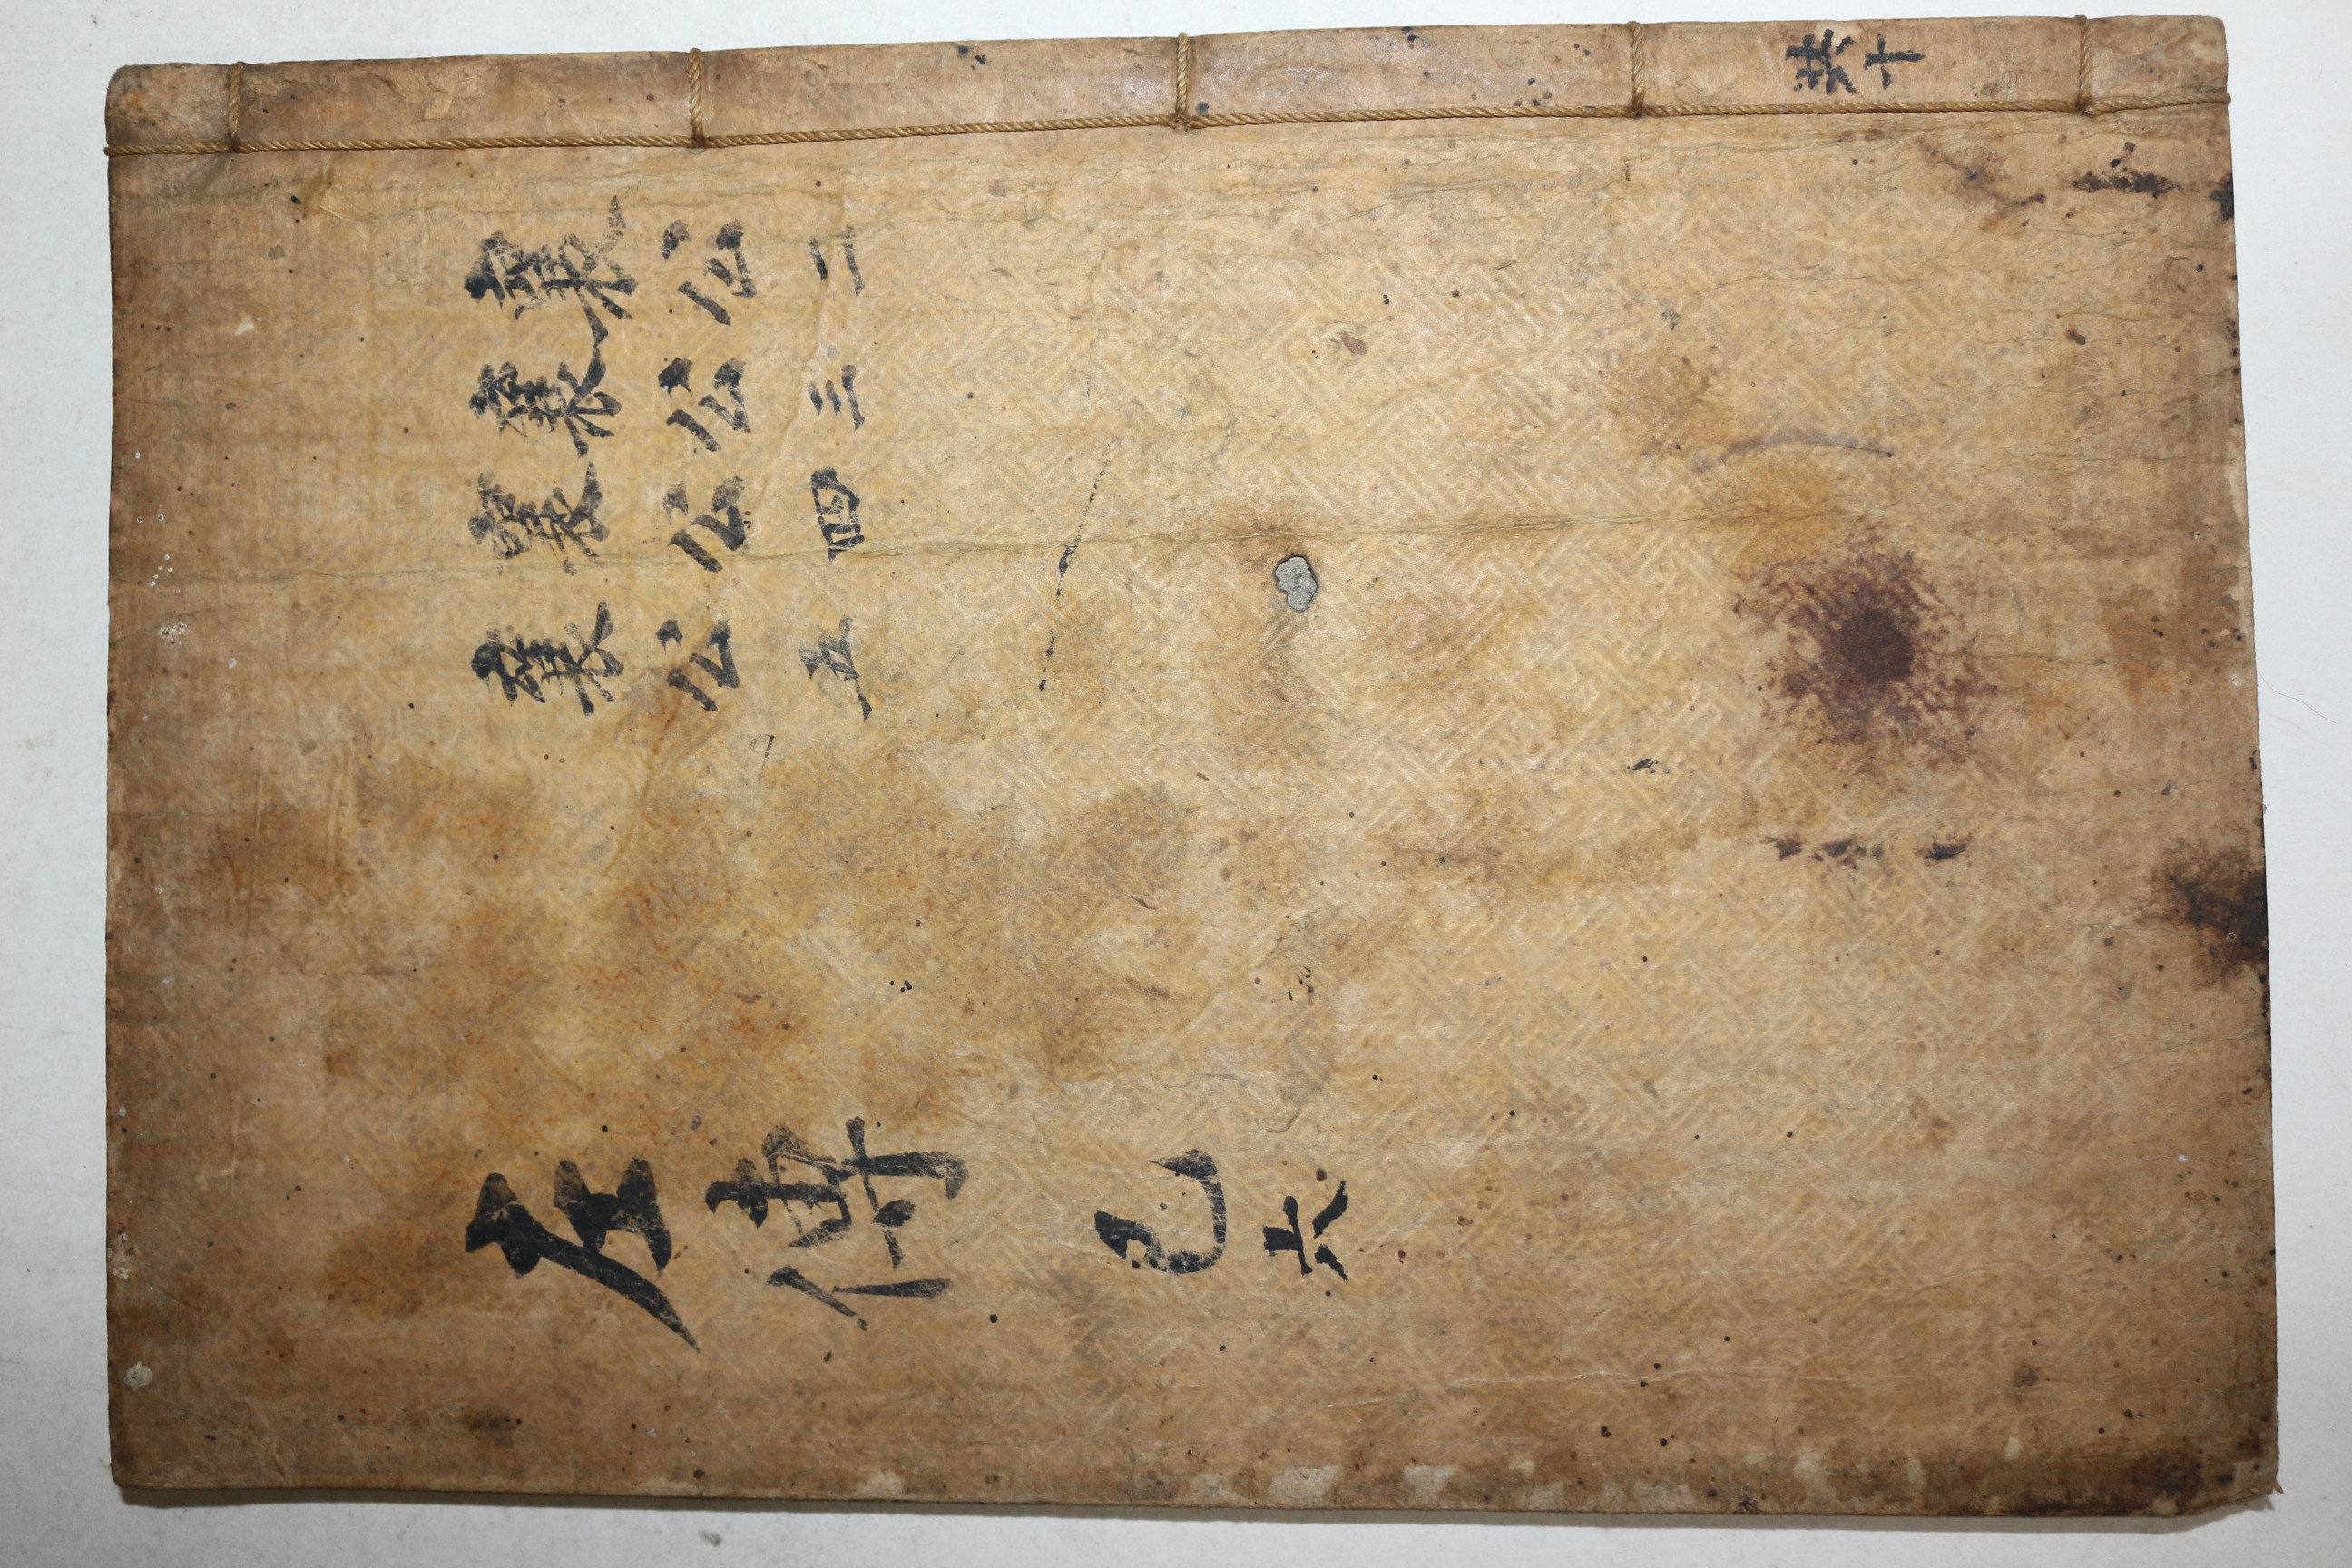 襄公二
襄公三
襄公四
襄公五
左傳 己六
共十